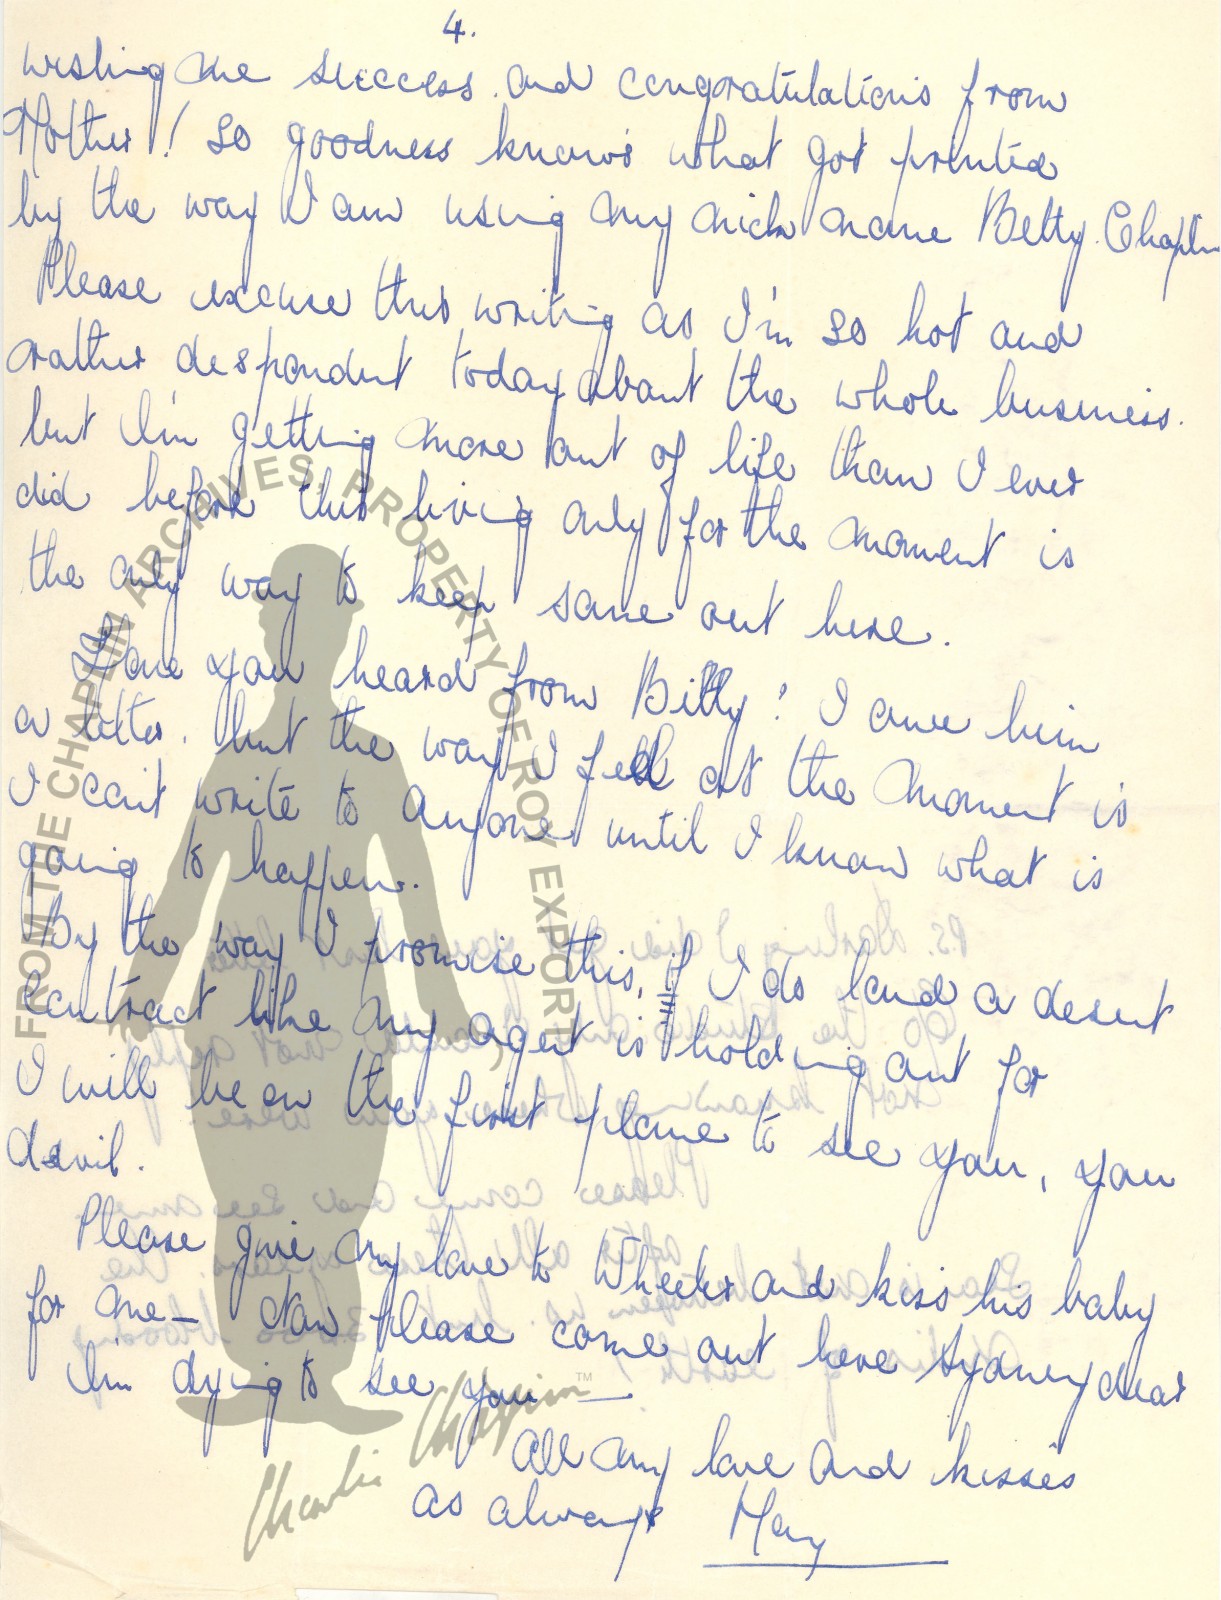 4.
wishing me success. and congratulations from
Mother! so goodness knows what got printed
by the way I am using my nick name Betty. Chaplin
Please excuse this writing as I'm so hot and
rather despondent today about the whole business.
but I'm getting more out of life than I ever
did before this living only for the moment is
the only way to keep sane out here.
Have you heard from Billy? I owe him
a letter. but the way I feel at the moment is
I can't write to anyone until I know what is
going to happen.
By the way I promise this, if I do land a decent
contract like my agent is holding out for
I will be on the first plane to see you, you
devil.
Please give my love to Wheeler and kiss his baby
for me — Now please come out here Sydney dear
I'm dying to see you —
All my love and kisses
as always May
FROM THE CHAPLIN ARCHIVES, PROPERTY OF ROY EXPORT
Charlie Chaplin™